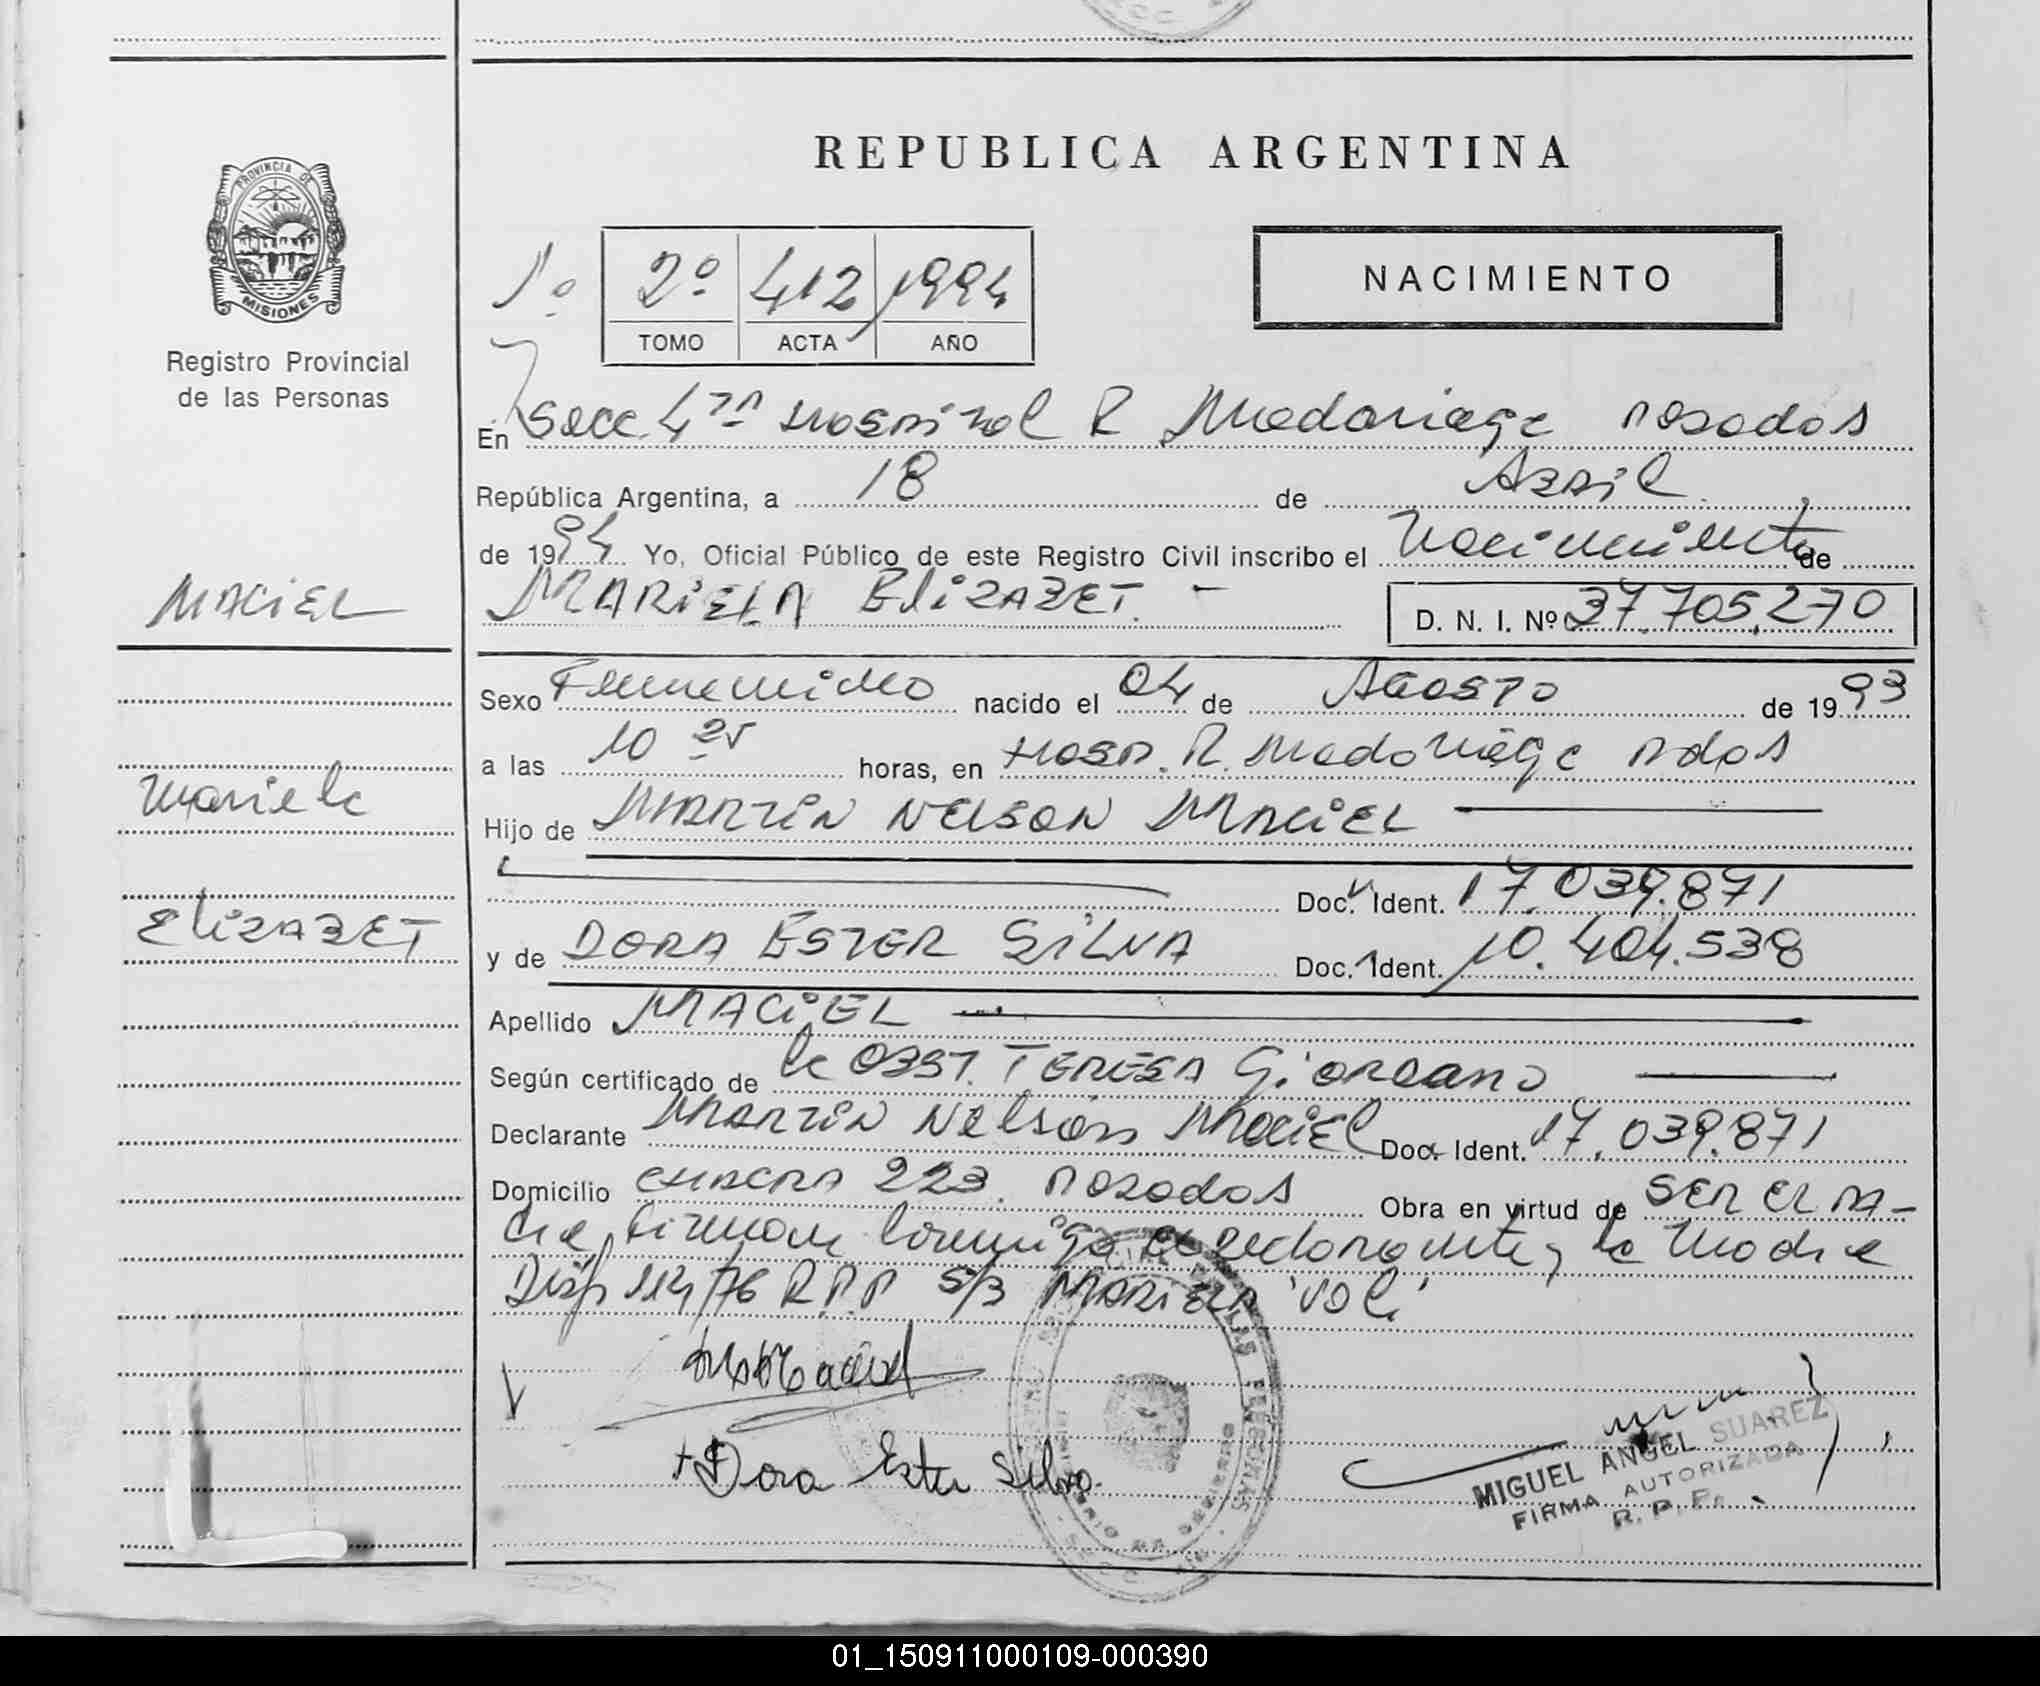 REPUBLICA ARGENTINA
PROVINCIA DE
MISIONES
Registro Provincial
de las Personas
1º 2º 412 1994
TOMO ACTA AÑO
NACIMIENTO
En Secc. 4ta Hospital R Madariaga posadas
República Argentina, a 18 de Abril
de 1994 Yo, Oficial Público de este Registro Civil inscribo el Nacimiento de
MARIELA ELIZABET. -
D. N. I. Nº 37.705.270
MACIEL
Sexo Femenino nacido el 04 de Agosto de 1993
a las 10 25 horas, en Hosp. R. Madariaga pdas
Mariela
Hijo de MARTIN NELSON MACIEL
Doc. Ident. 17.039.871
ELIZABET
y de DORA ESTER SILVA Doc. Ident. 10.404.538
Apellido MACIEL
Según certificado de la OBST. TERESA Giordano
Declarante MARTIN Nelson Maciel Doc. Ident. 17.039.871
Domicilio CHACRA 223. posadas Obra en virtud de SER EL PA-
dre, firman conmigo el declarante y la Madre
Disp 114/76 R.P.P S/B MARIELA 'VALE'
Dora Ester Silva.
MIGUEL ANGEL SUAREZ
FIRMA AUTORIZADA
R. P. P.
01_150911000109-000390